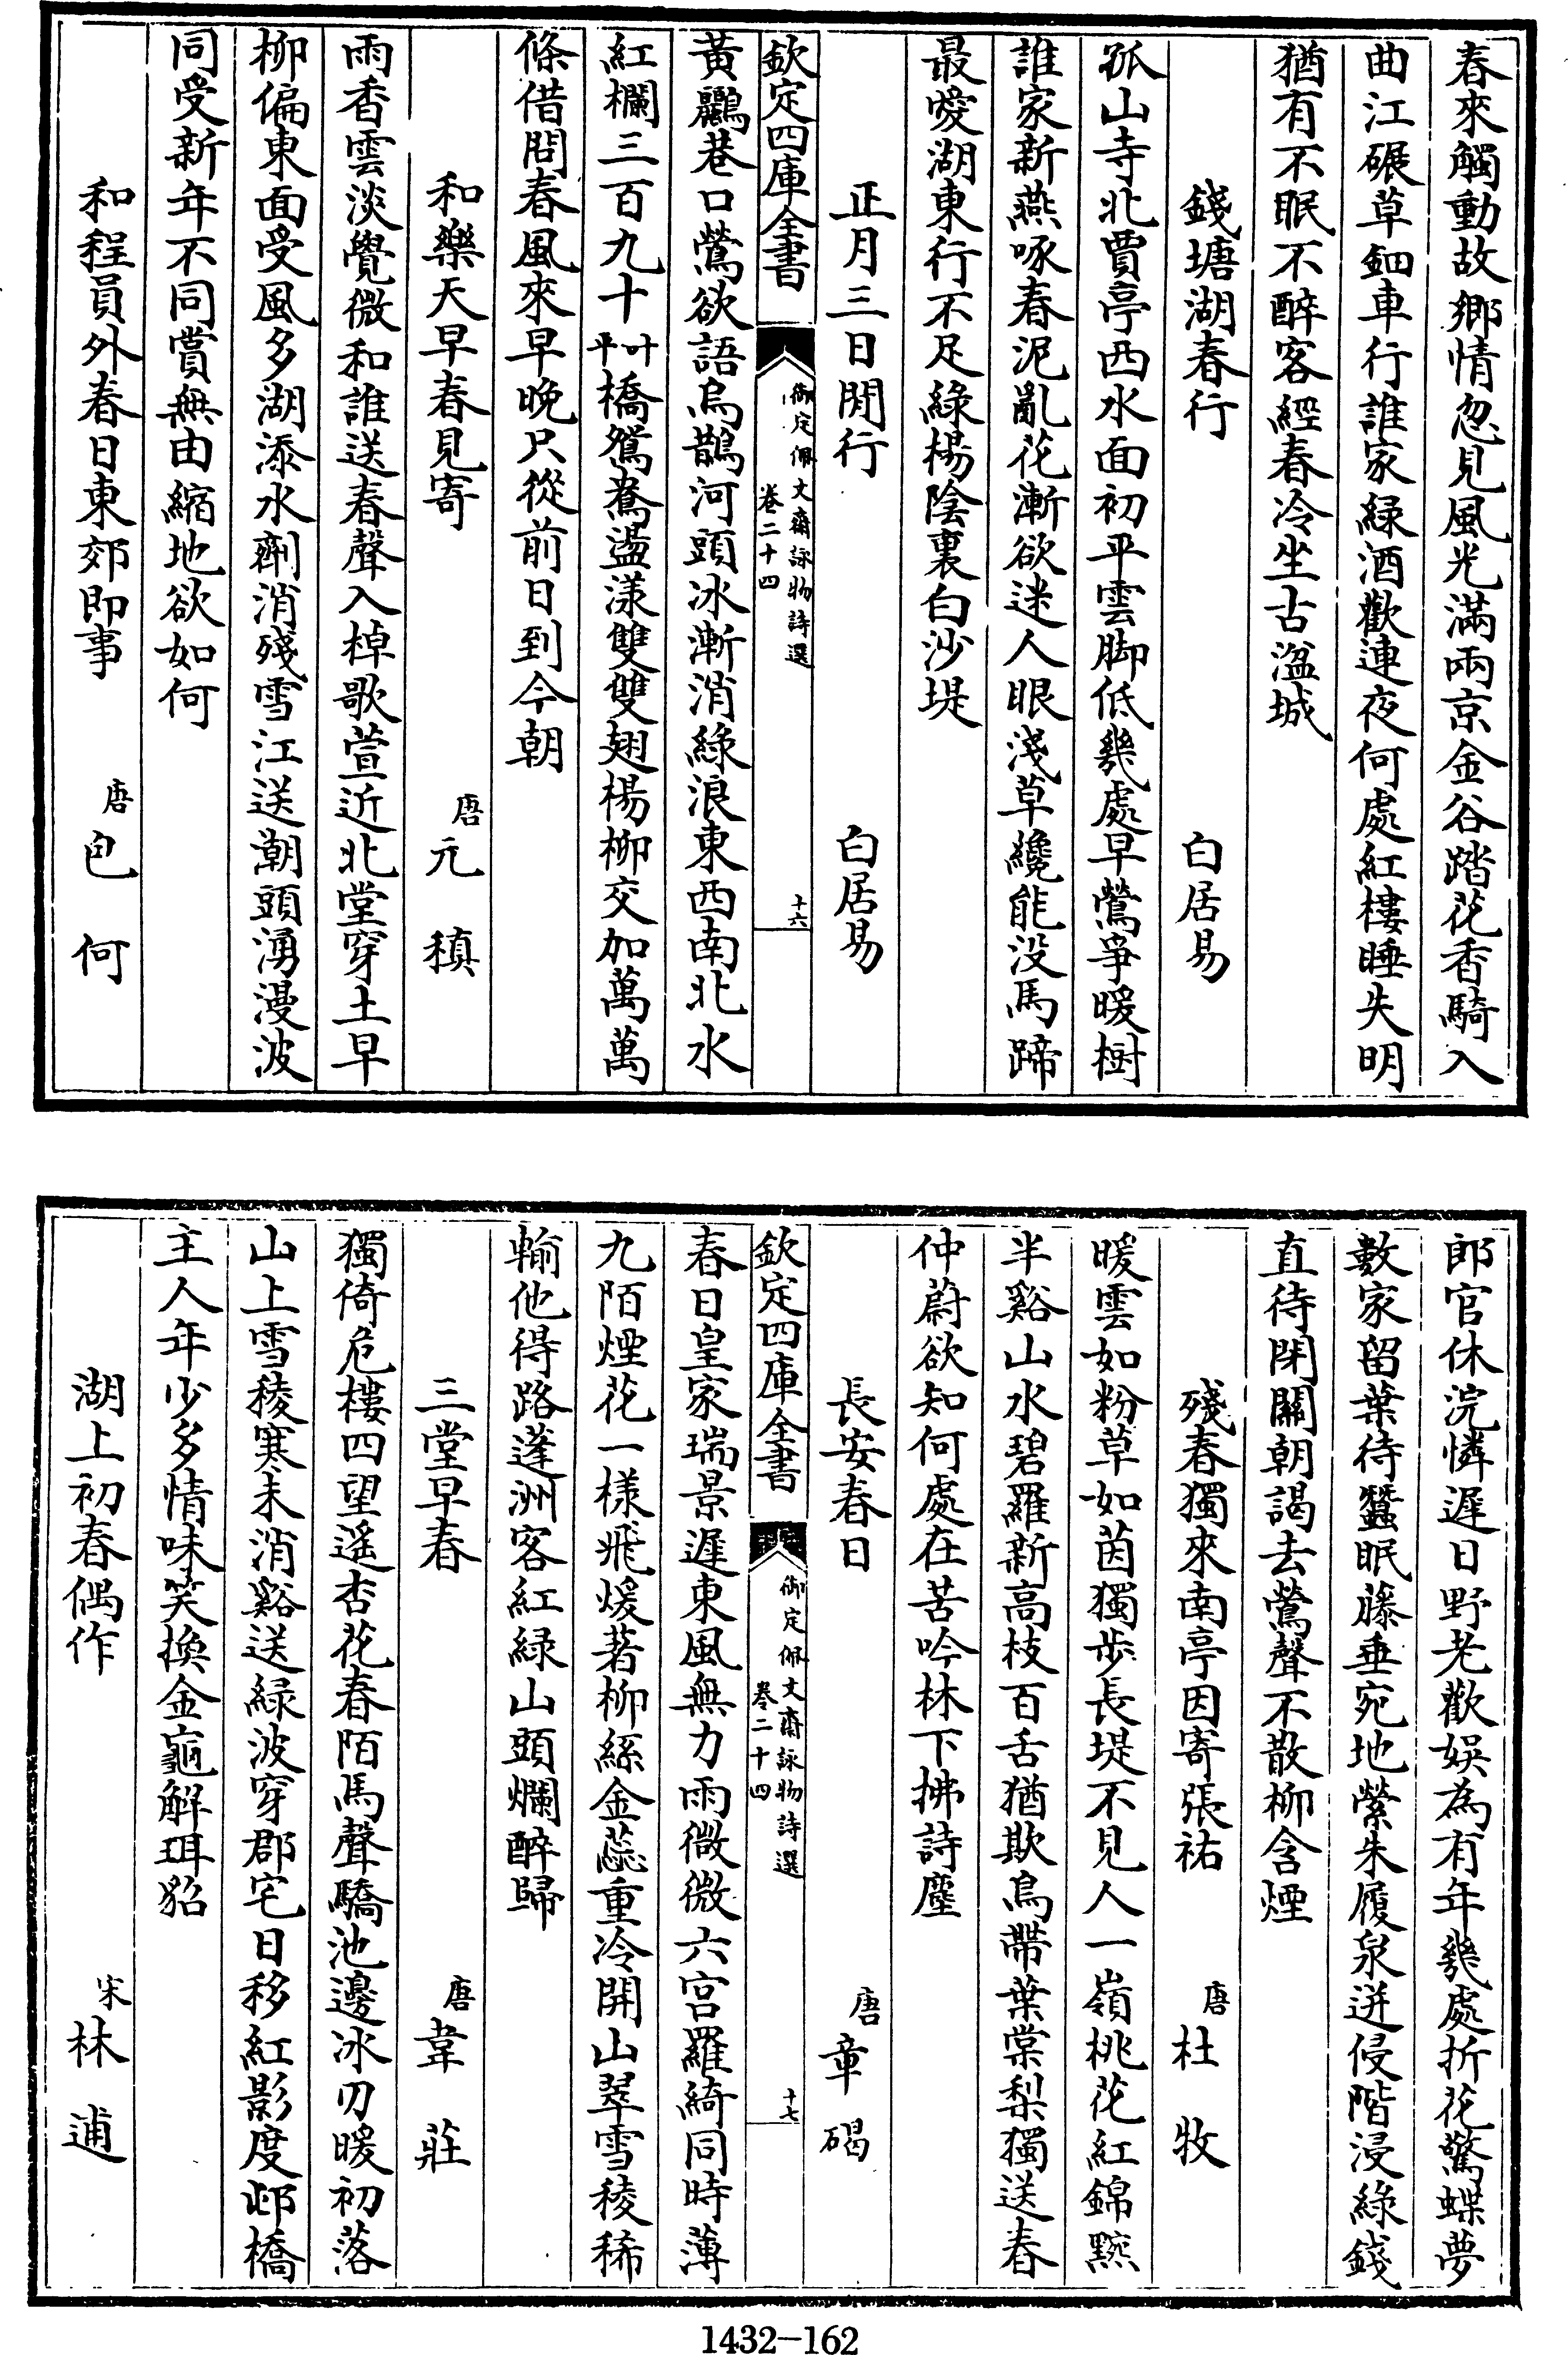 春來觸動故鄉情忽見風光滿兩京金谷踏花香騎入
曲江碾草鈿車行誰家綠酒歡連夜何處紅樓睡失明
猶有不眠不醉客經春冷坐古湓城
錢塘湖春行 白居易
孤山寺北賈亭西水面初平雲脚低幾處早鶯爭暖樹
誰家新燕啄春泥亂花漸欲迷人眼淺草纔能没馬蹄
最愛湖東行不足綠楊陰裏白沙堤
正月三日閒行 白居易
欽定四庫全書 御定佩文齋詠物詩選 卷二十四 十六
黃鸝巷口鶯欲語烏鵲河頭冰漸消綠浪東西南北水
紅欄三百九十叶平橋鴛鴦盪漾雙雙翅楊柳交加萬萬
條借問春風來早晚只從前日到今朝
和樂天早春見寄 唐元稹
雨香雲淡覺微和誰送春聲入棹歌萱近北堂穿土早
柳偏東面受風多湖添水劑消殘雪江送潮頭湧漫波
同受新年不同賞無由縮地欲如何
和程員外春日東郊即事 唐包何
郎官休浣憐遲日野老歡娛為有年幾處折花驚蝶夢
數家留葉待蠶眠藤垂宛地縈朱履泉迸侵階浸綠錢
直待閉關朝謁去鶯聲不散柳含煙
殘春獨來南亭因寄張祐 唐杜牧
暖雲如粉草如茵獨步長堤不見人一嶺桃花紅錦黦
半谿山水碧羅新高枝百舌猶欺鳥帶葉棠梨獨送春
仲蔚欲知何處在苦吟林下拂詩塵
長安春日 唐章碣
欽定四庫全書 御定佩文齋詠物詩選 卷二十四 十七
春日皇家瑞景遲東風無力雨微微六宮羅綺同時薄
九陌煙花一樣飛煖著柳絲金蕊重冷開山翠雪稜稀
輸他得路蓬洲客紅綠山頭爛醉歸
三堂早春 唐韋莊
獨倚危樓四望遙杏花春陌馬聲驕池邊冰刃暖初落
山上雪稜寒未消谿送綠波穿郡宅日移紅影度邨橋
主人年少多情味笑換金龜解珥貂
湖上初春偶作 宋林逋
1432-162